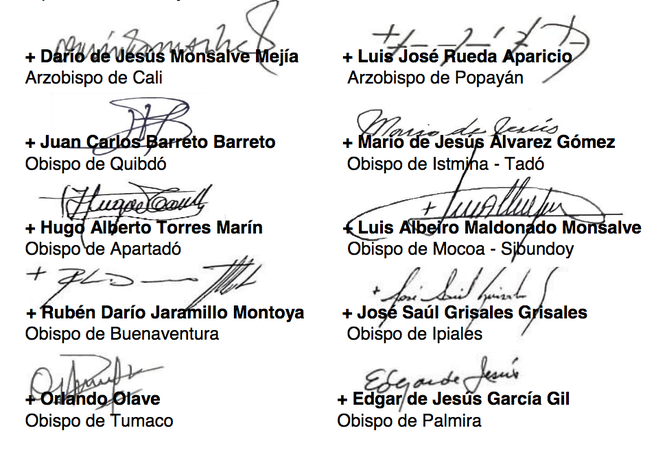 + Darío de Jesús Monsalve Mejía
Arzobispo de Cali
+ Luis José Rueda Aparicio
Arzobispo de Popayán
+ Juan Carlos Barreto Barreto
Obispo de Quibdó
Mario de Jesús
+ Mario de Jesús Álvarez Gómez
Obispo de Istmina - Tadó
+ Hugo Alberto Torres Marín
Obispo de Apartadó
+ Luis Albeiro Maldonado Monsalve
Obispo de Mocoa - Sibundoy
+ Rubén Darío Jaramillo Montoya
Obispo de Buenaventura
+ José Saúl Grisales Grisales
Obispo de Ipiales
+ Orlando Olave
Obispo de Tumaco
Edgar de Jesús
+ Edgar de Jesús García Gil
Obispo de Palmira